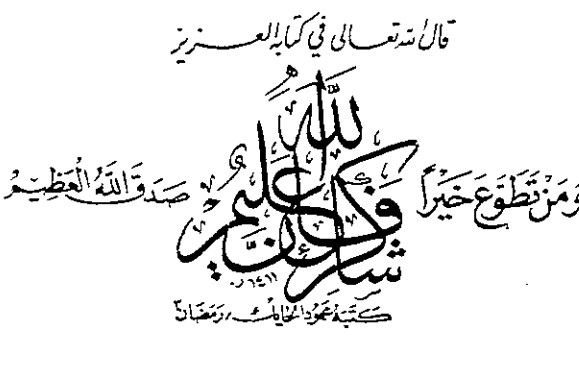 قال الله تعالى في كتابه العزيز
وَمَنْ تَطَوَّعَ خَيْراً فإن الله شاكر عليم صَدَقَ اللَّهُ الْعَظِيمُ
كتبه رمضان